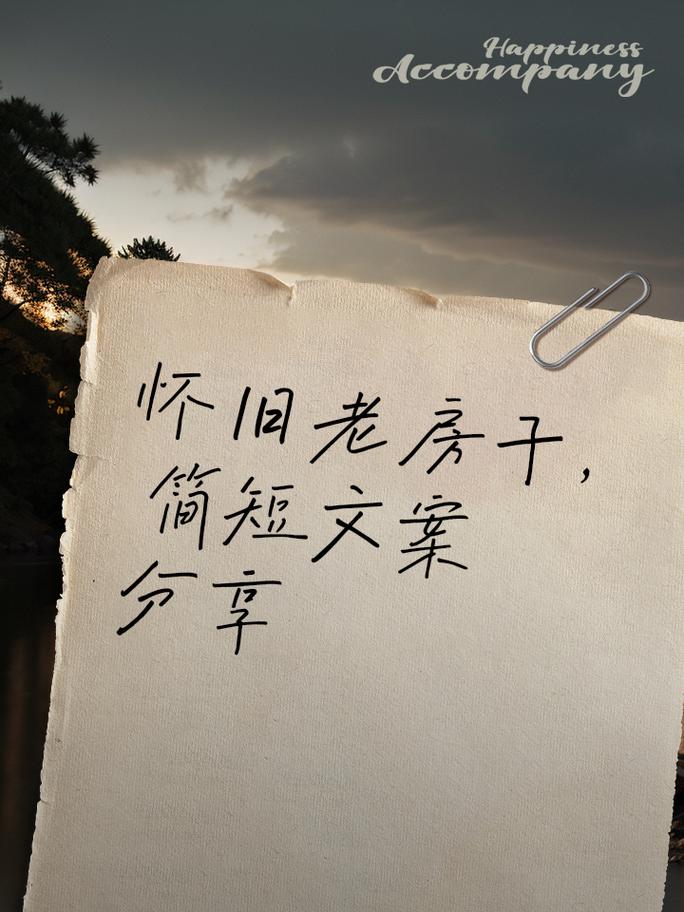 Happiness
Accompany
怀旧老房子，
简短文案
分享